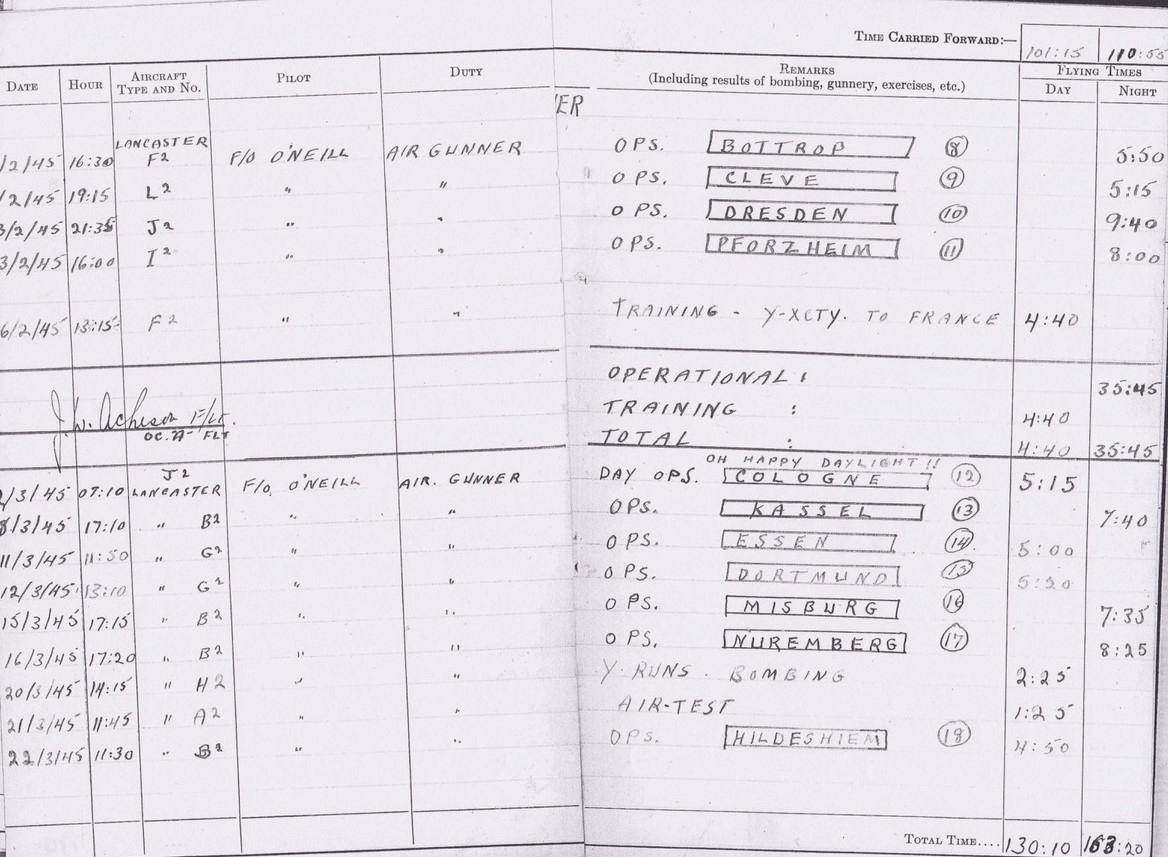 TIME CARRIED FORWARD:— 101:15 110:55
DATE HOUR AIRCRAFT TYPE AND NO. PILOT DUTY REMARKS (Including results of bombing, gunnery, exercises, etc.) FLYING TIMES DAY NIGHT
ER
/2/45 16:30 LANCASTER F2 F/O O'NEILL AIR GUNNER OPS. BOTTROP 8 5:50
/2/45 19:15 L2 " " OPS. CLEVE 9 5:15
3/2/45 21:35 J2 " " OPS. DRESDEN 10 9:40
3/2/45 16:00 I2 " " OPS. PFORZHEIM 11 8:00
6/2/45 13:15 F2 " " TRAINING - Y-XCTY. TO FRANCE 4:40
OPERATIONAL : 35:45
J.W. Acheson F/Lt. TRAINING : 4:40
OC. "A" FLT TOTAL : 4:40 35:45
OH HAPPY DAYLIGHT !!
2/3/45 07:10 J2 LANCASTER F/O. O'NEILL AIR. GUNNER DAY OPS. COLOGNE 12 5:15
8/3/45 17:10 " B2 " " OPS. KASSEL 13 7:40
11/3/45 11:50 " G2 " " OPS. ESSEN 14 5:00
12/3/45 13:10 " G2 " " OPS. DORTMUND 15 5:20
15/3/45 17:15 " B2 " " OPS. MISBURG 16 7:35
16/3/45 17:20 " B2 " " OPS. NUREMBERG 17 8:25
20/3/45 14:15 " H2 " " Y. RUNS. BOMBING 2:25
21/3/45 11:45 " A2 " " AIR-TEST 1:25
22/3/45 11:30 " B2 " " OPS. HILDESHIEM 18 4:50
TOTAL TIME.... 130:10 163:20